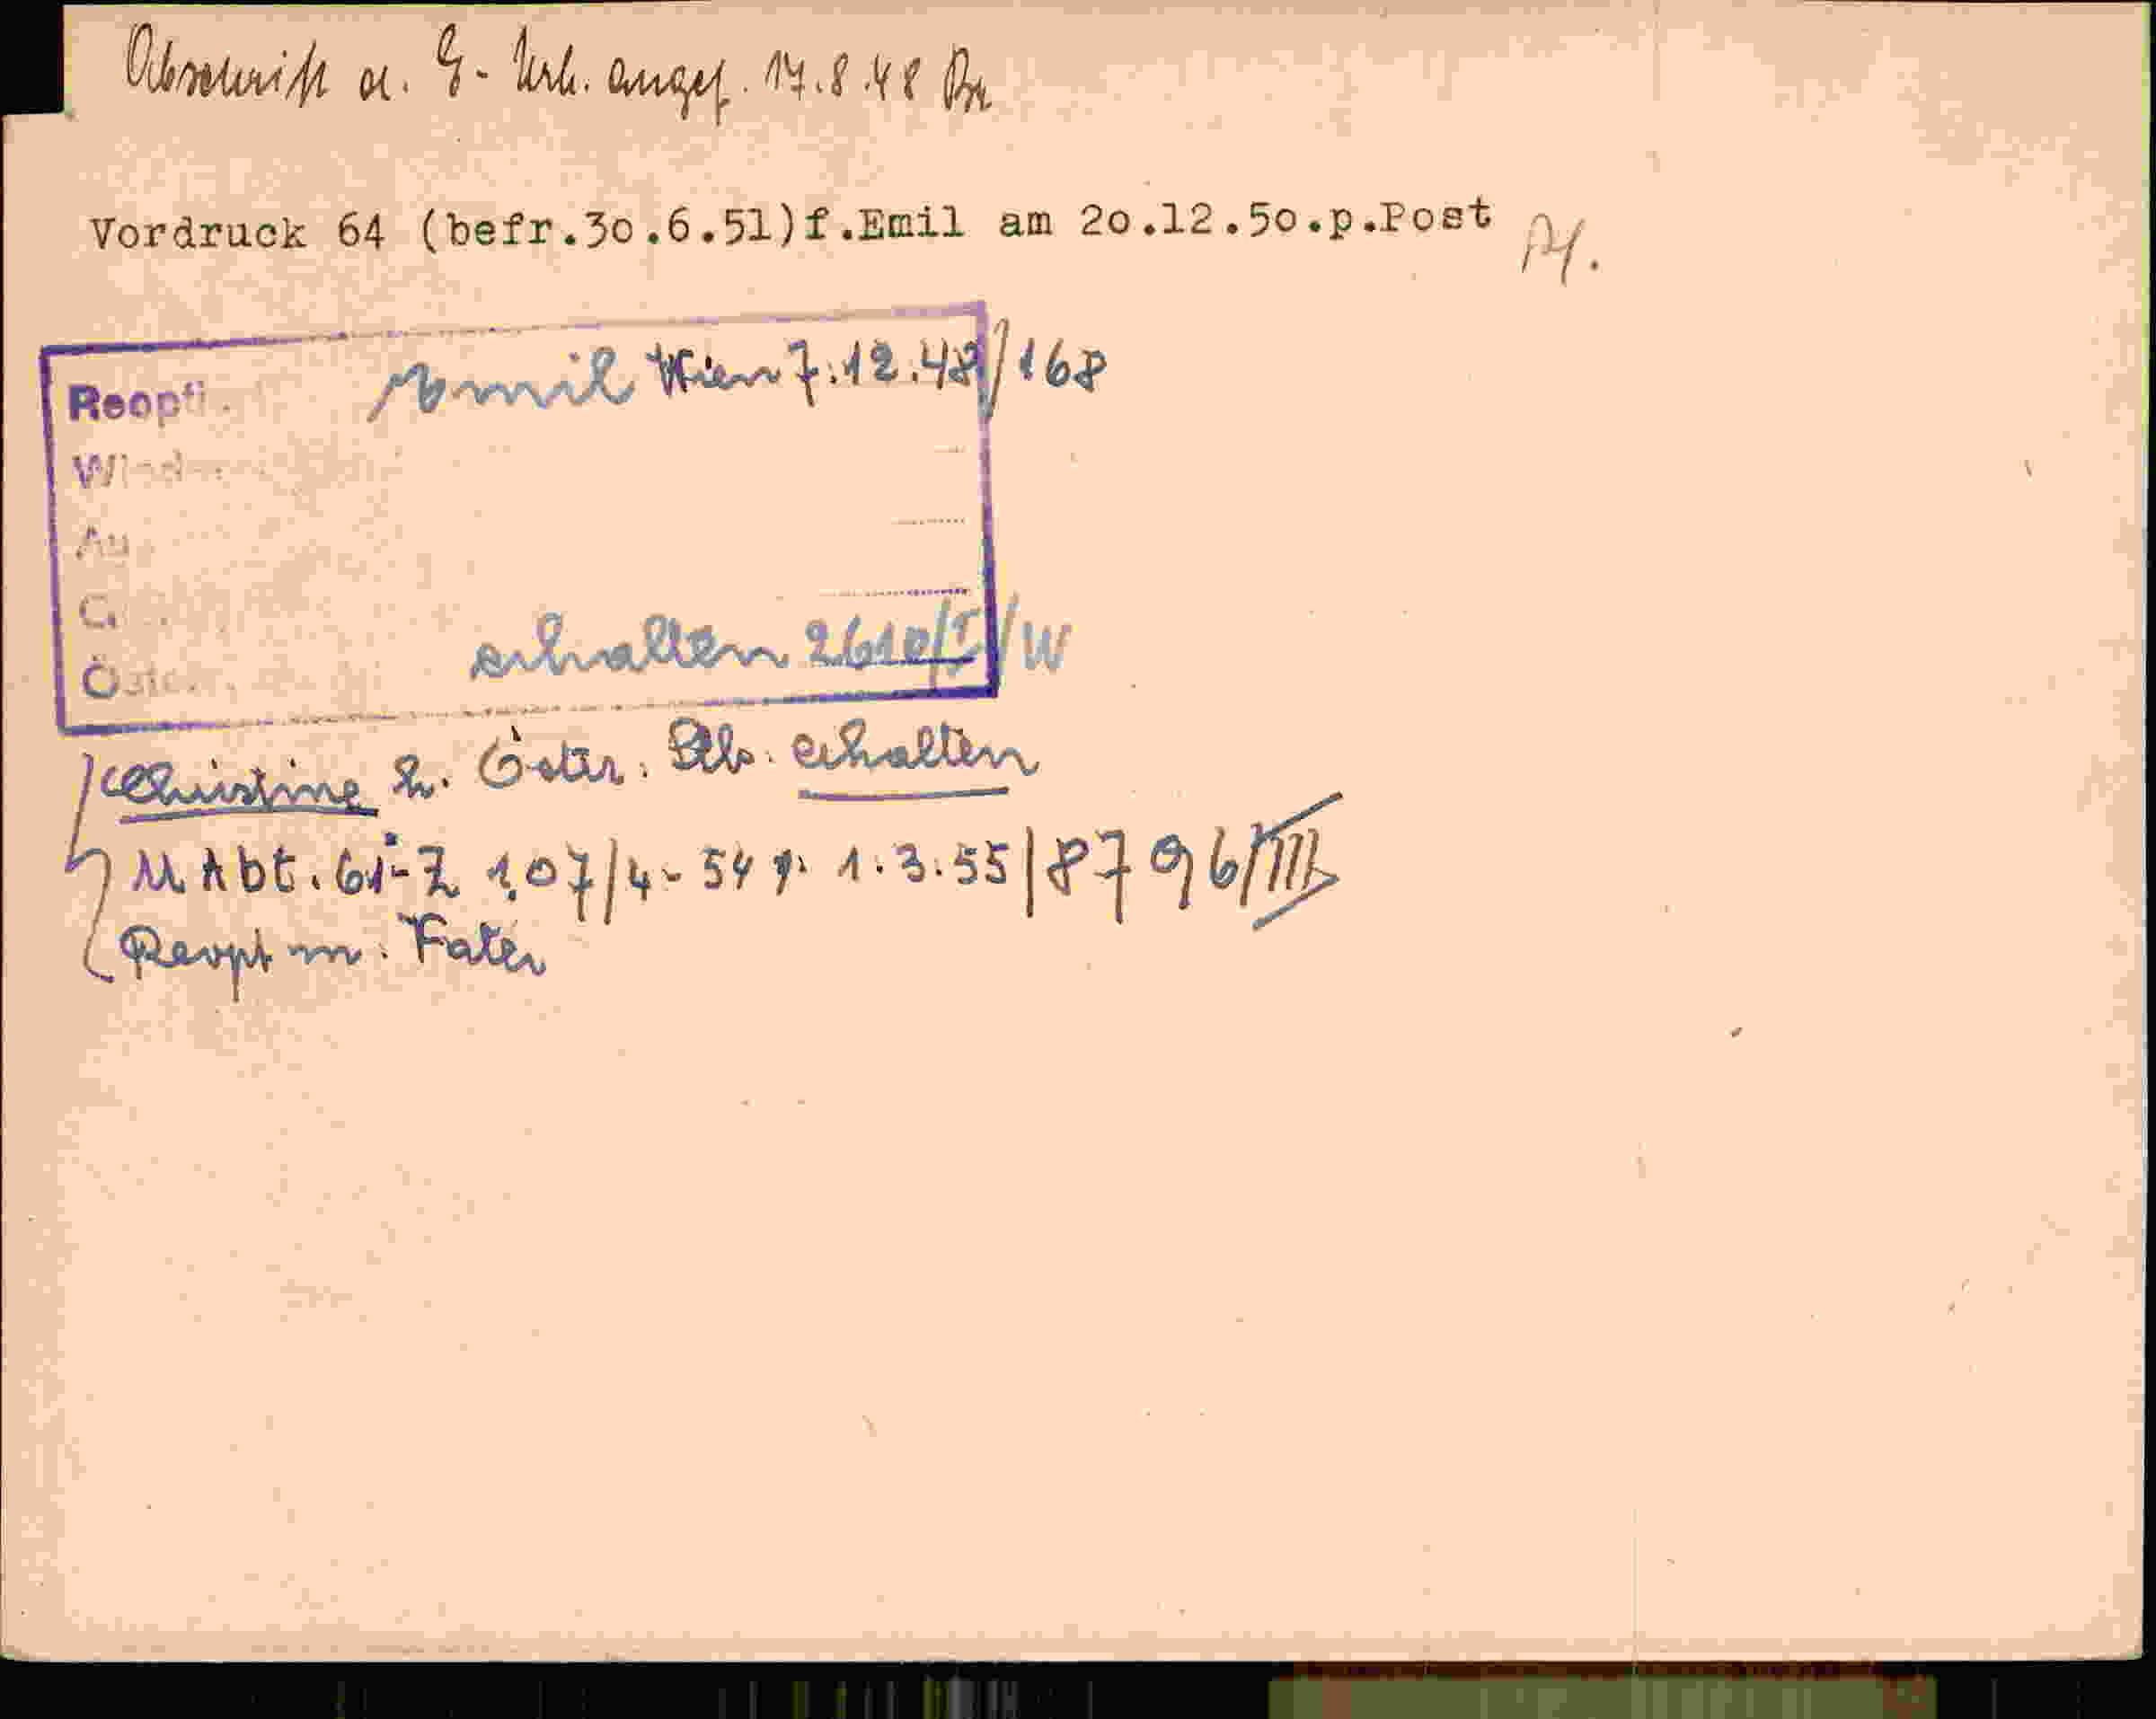 Abschrift a. G- Urk. angef. 17.8.48
Vordruck 64 (befr.30.6.51)f.Emil am 20.12.50.p.Post
Reopt Emil Wien 7.12.48/168
erhalten 2610/I/W
Christine 2. Öster. Stb. erhalten
M Abt. 61-Z 107/4-54 v. 1.3.55/8796/III
Reopt m. Vater